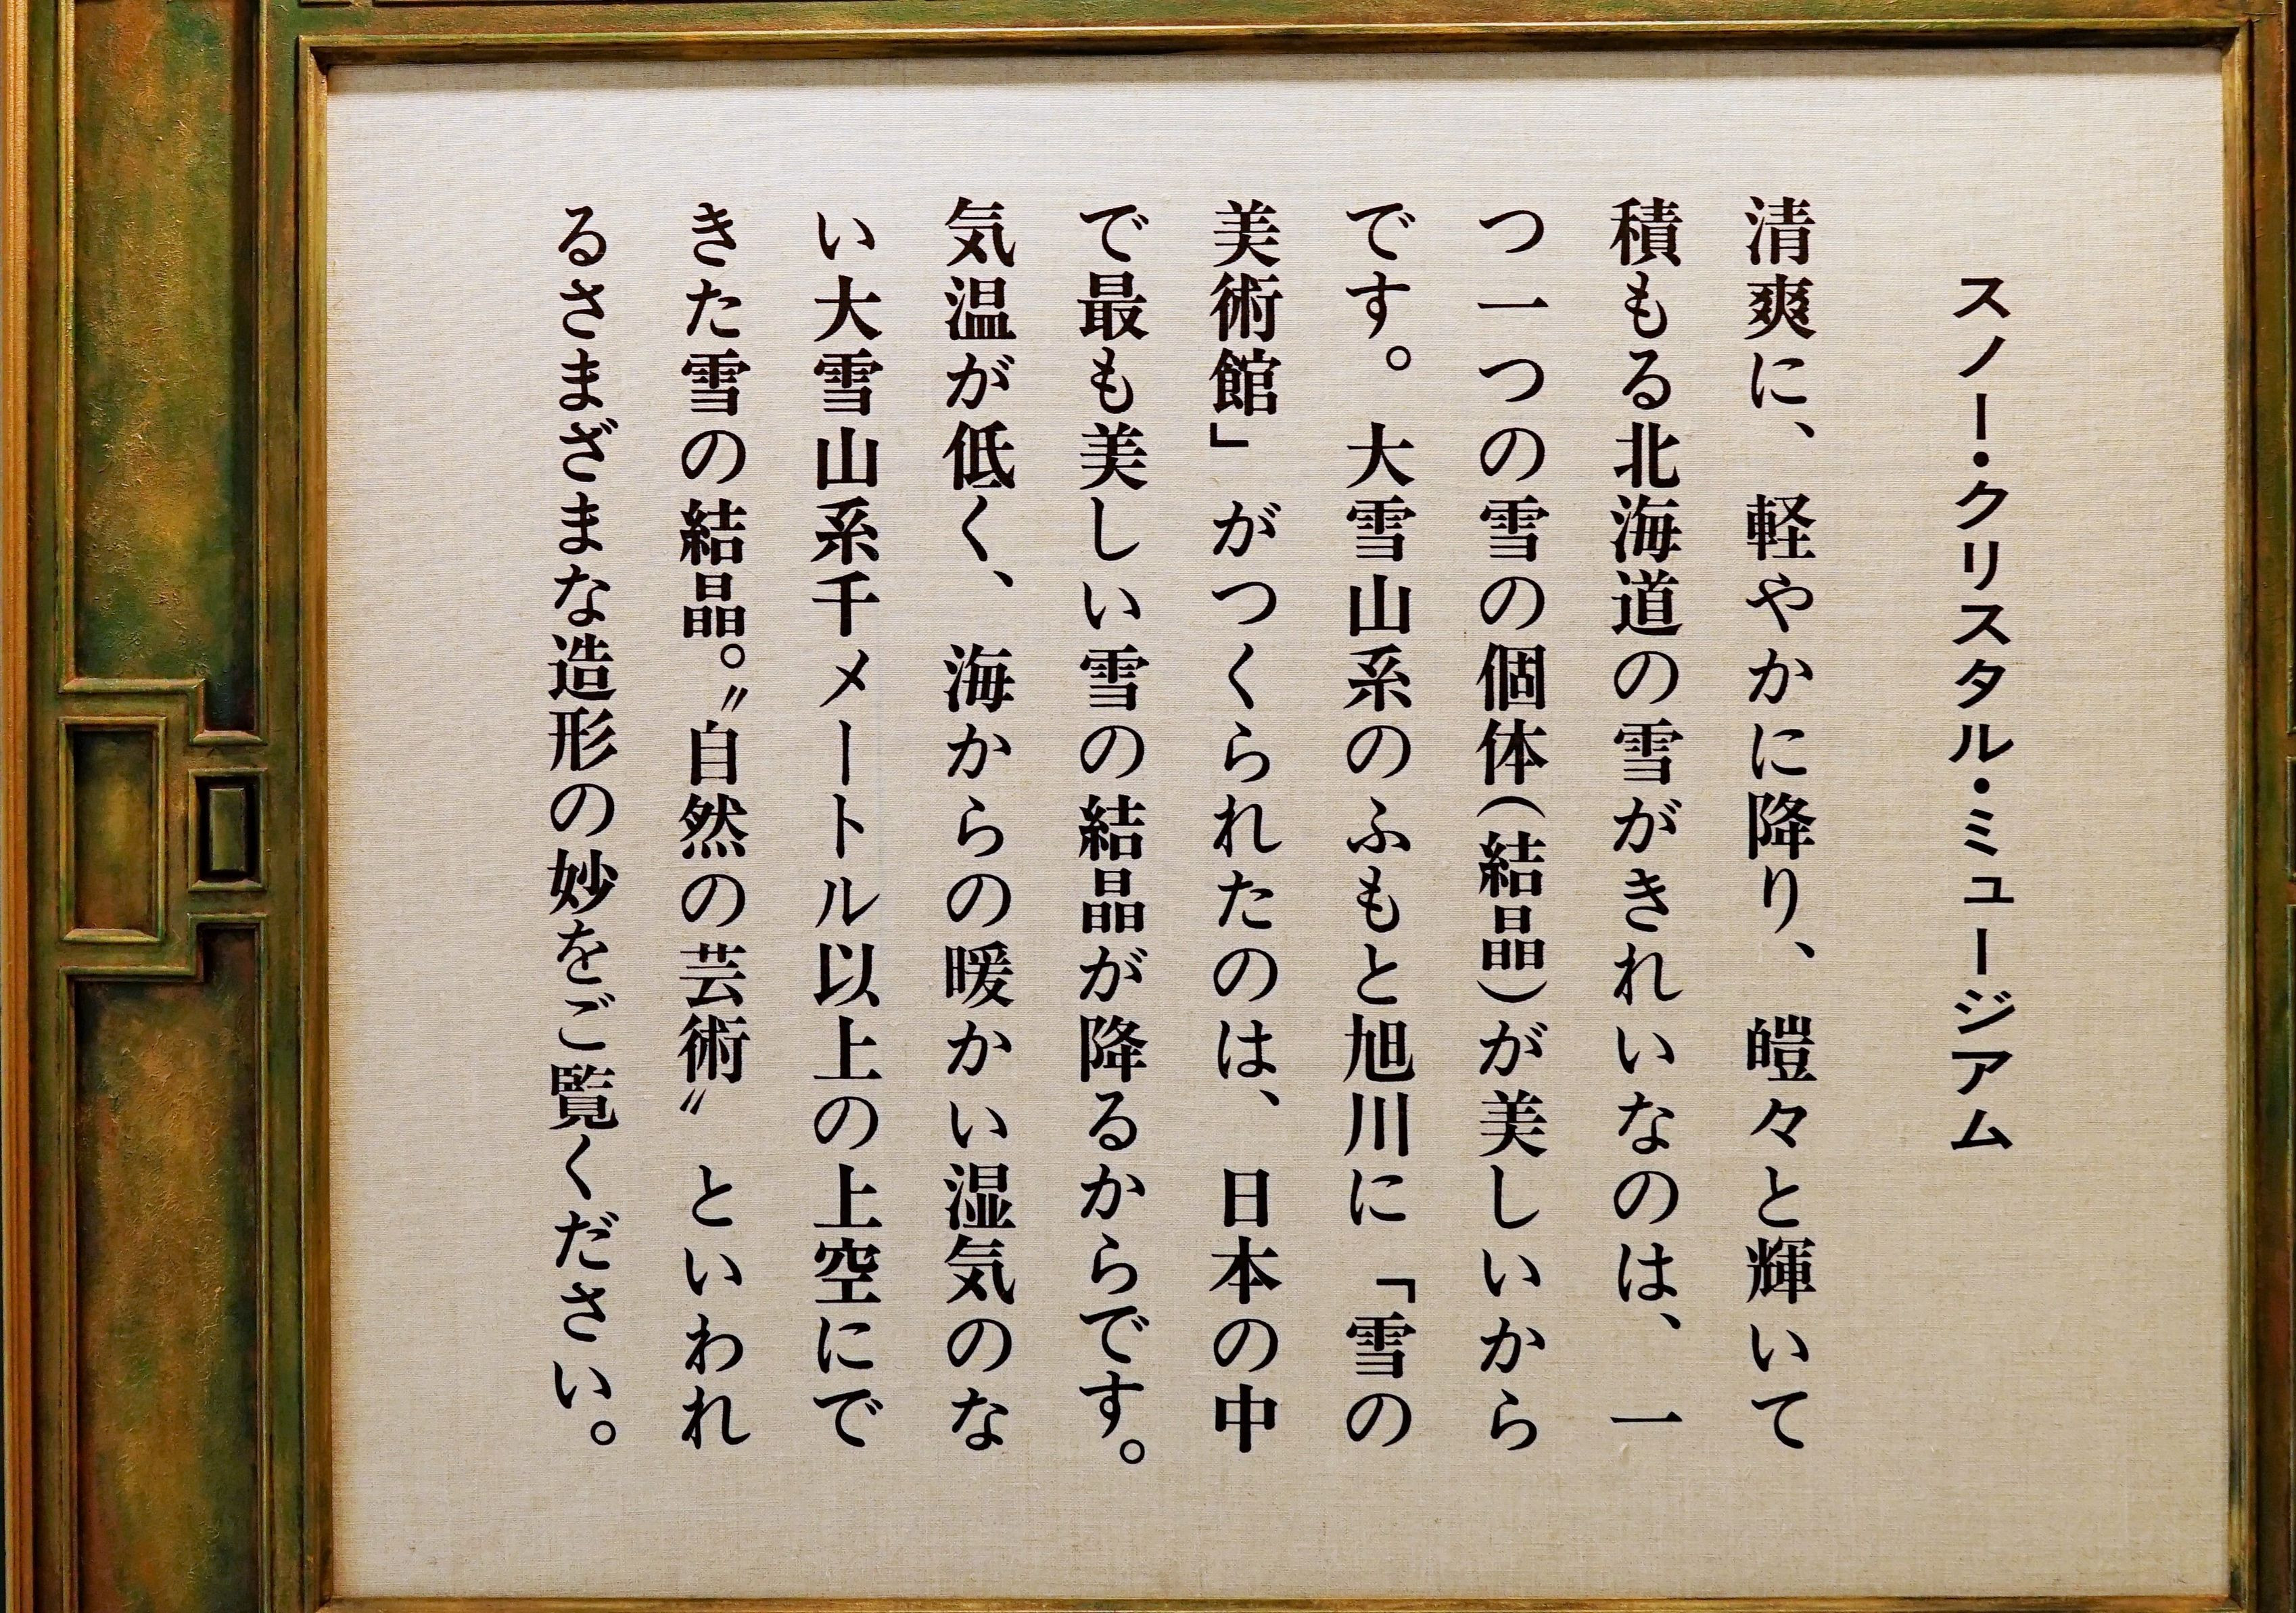 スノー・クリスタル・ミュージアム
清爽に、軽やかに降り、皚々と輝いて
積もる北海道の雪がきれいなのは、一
つ一つの雪の個体(結晶)が美しいから
です。大雪山系のふもと旭川に「雪の
美術館」がつくられたのは、日本の中
で最も美しい雪の結晶が降るからです。
気温が低く、海からの暖かい湿気のな
い大雪山系千メートル以上の上空にで
きた雪の結晶。〝自然の芸術〟といわれ
るさまざまな造形の妙をご覧ください。